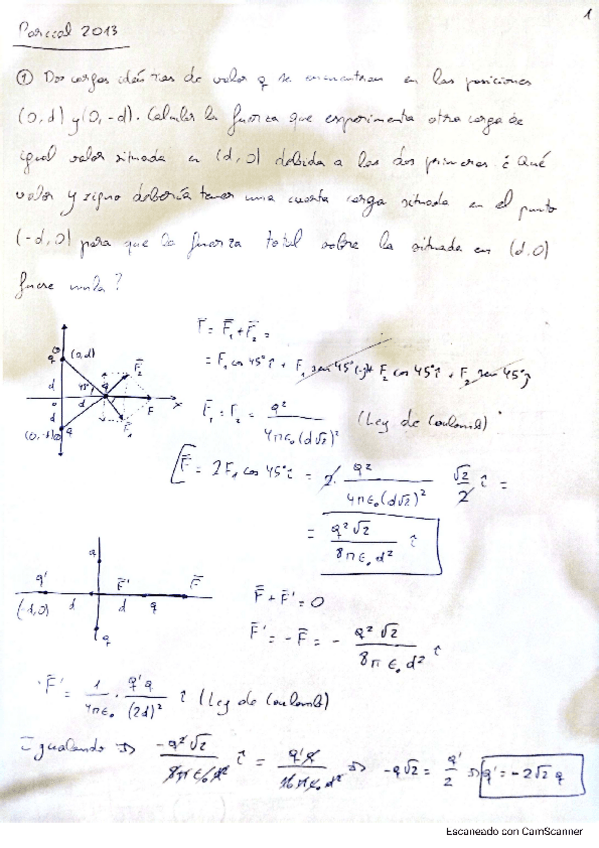 1
Parcial 2013
① Dos cargas idénticas de valor q se encuentran en las posiciones
(0,d) y (0,-d). Calcular la fuerza que experimenta otra carga de
igual valor situada en (d,0) debida a las dos primeras. ¿Qué
valor y signo debería tener una cuarta carga situada en el punto
(-d,0) para que la fuerza total sobre la situada en (d,0)
fuere nula?
F̄ = F̄₁ + F̄₂ =
= F₁ cos 45° î + F₁ sen 45° (-ĵ) + F₂ cos 45° î + F₂ sen 45° ĵ
q (0,d)
d 45° q F̄₂
o d F x
d
(0,-d) q F̄₁
F̄₁ = F̄₂ = q² / 4πε₀(d√2)² (Ley de Coulomb)
F̄ = 2F₁ cos 45° î = 2 · q² / 4πε₀(d√2)² √2/2 î =
= q²√2 / 8πε₀d² î
q
q' F̄' F̄
(-d,0) d d q
q
F̄ + F̄' = 0
F̄' = -F̄ = - q²√2 / 8πε₀d² î
F̄' = 1/4πε₀ · q'q / (2d)² î (Ley de Coulomb)
Igualando ⇒ -q²√2 / 8πε₀d² î = q'q / 16πε₀d² ⇒ -q√2 = q'/2 ⇒ q' = -2√2 q
Escaneado con CamScanner